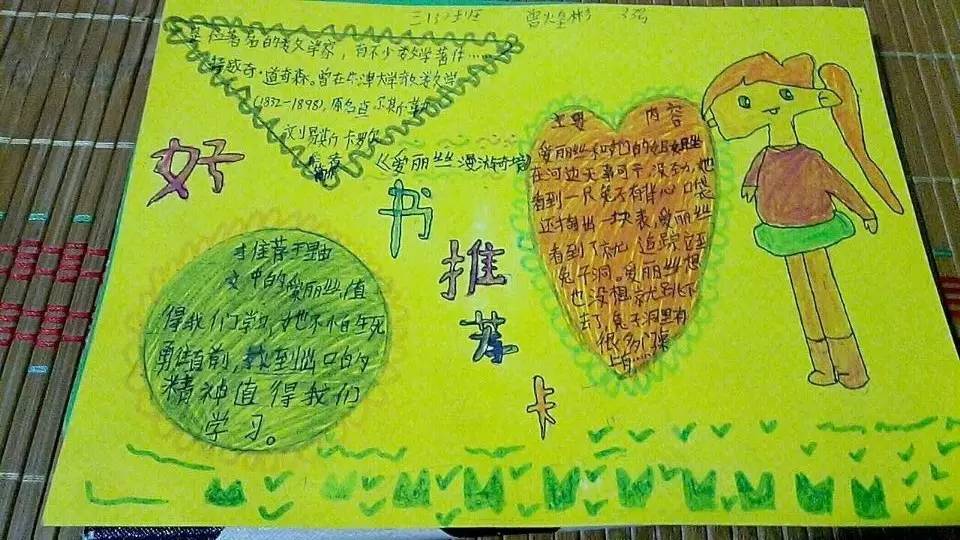 三(3)班 33号
是位著名的数学家，有不少数学著作……
曾在牛津大学教数学
(1832—1898)，原名查尔斯·
刘易斯 卡罗尔
《爱丽丝漫游奇境》
好
书
推
荐
卡
主要 内容
爱丽丝和她的姐姐坐
在河边无事可干，没劲，她
看到一只兔子有背心口袋
还掏出一块表，爱丽丝
看到了就追踪
兔子洞。爱丽丝想
也没想就跳下
去了兔子洞里有
很多
推荐理由
文中的爱丽丝，值
得我们学习，她不怕生死
勇往直前，找到出口的
精神值得我们
学习。